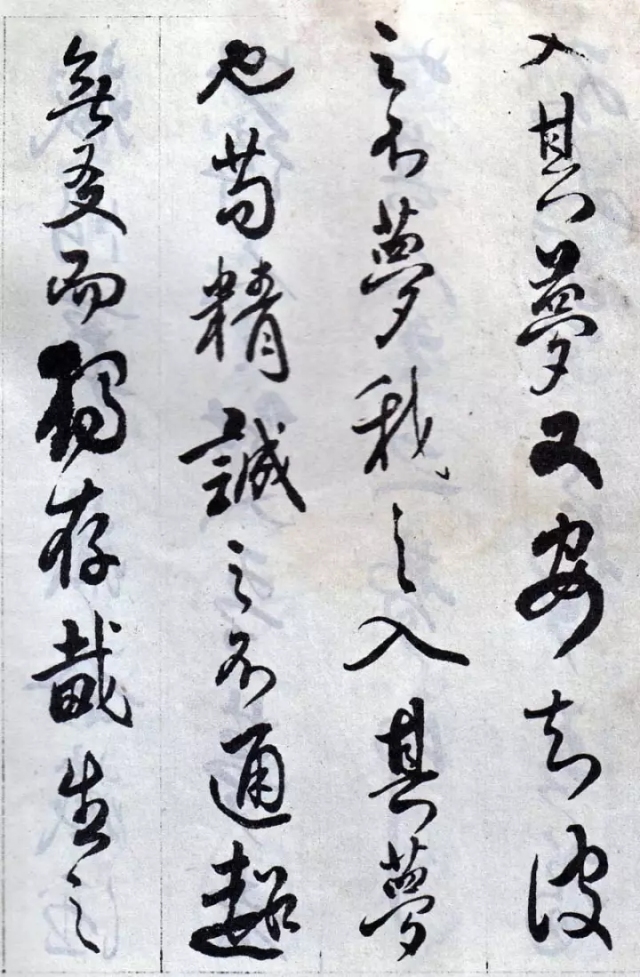 入其夢又安知彼
之不夢我之入其夢
也苟精誠之所通超
無友而獨存哉生之